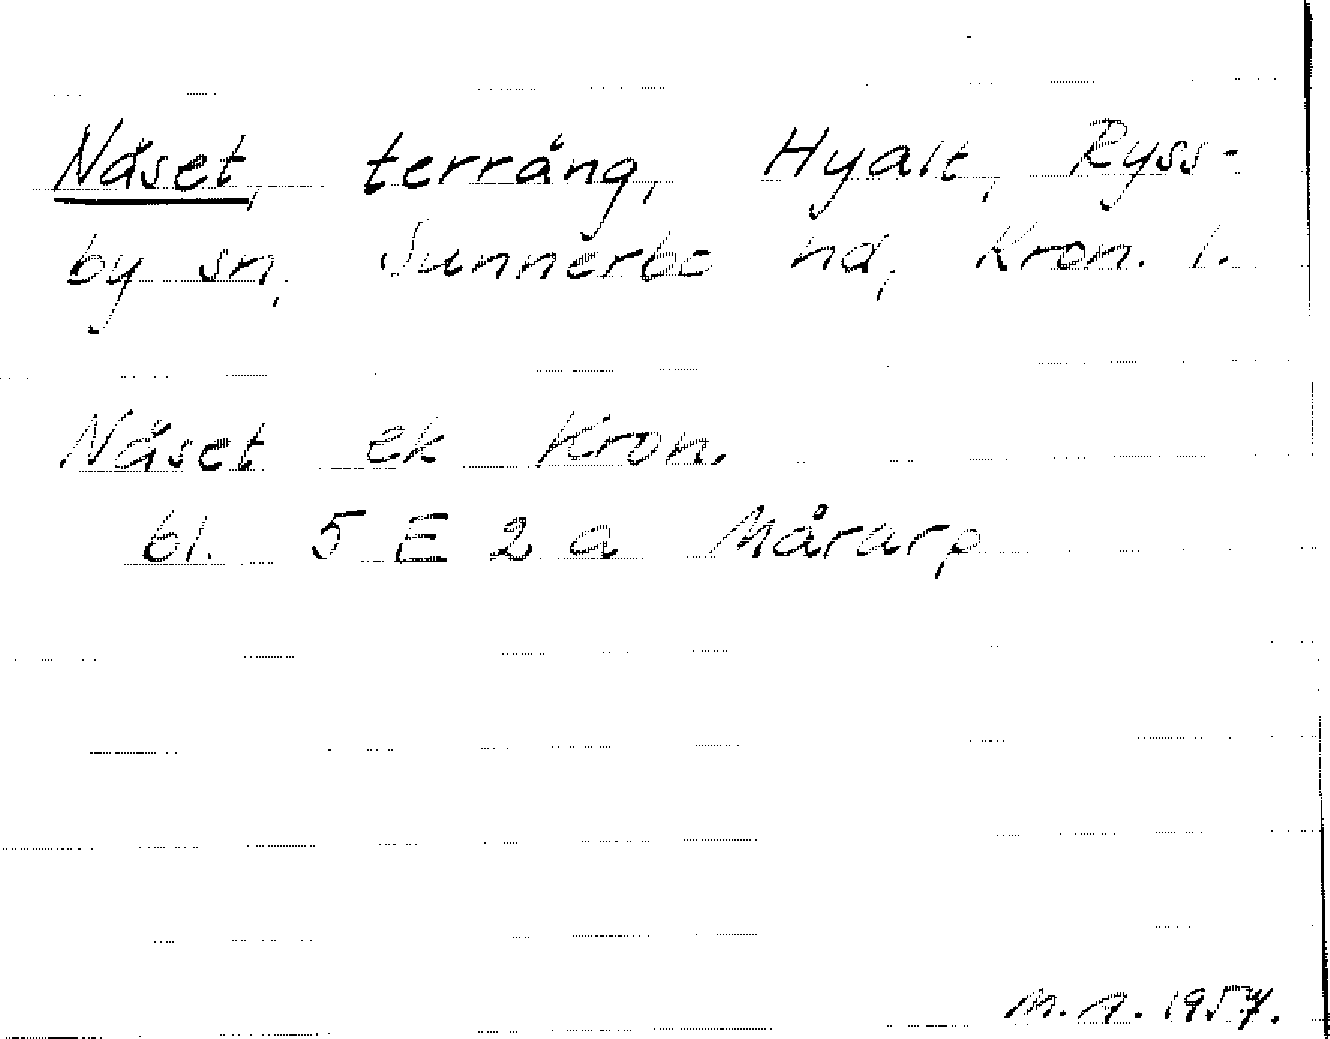 Näset, terräng, Hyalt, Ryss-
by sn, Sunnerbo hd, Kron. l.
Näset ek Kron.
bl. 5 E 2 a Mårarp
M. A. 1957.